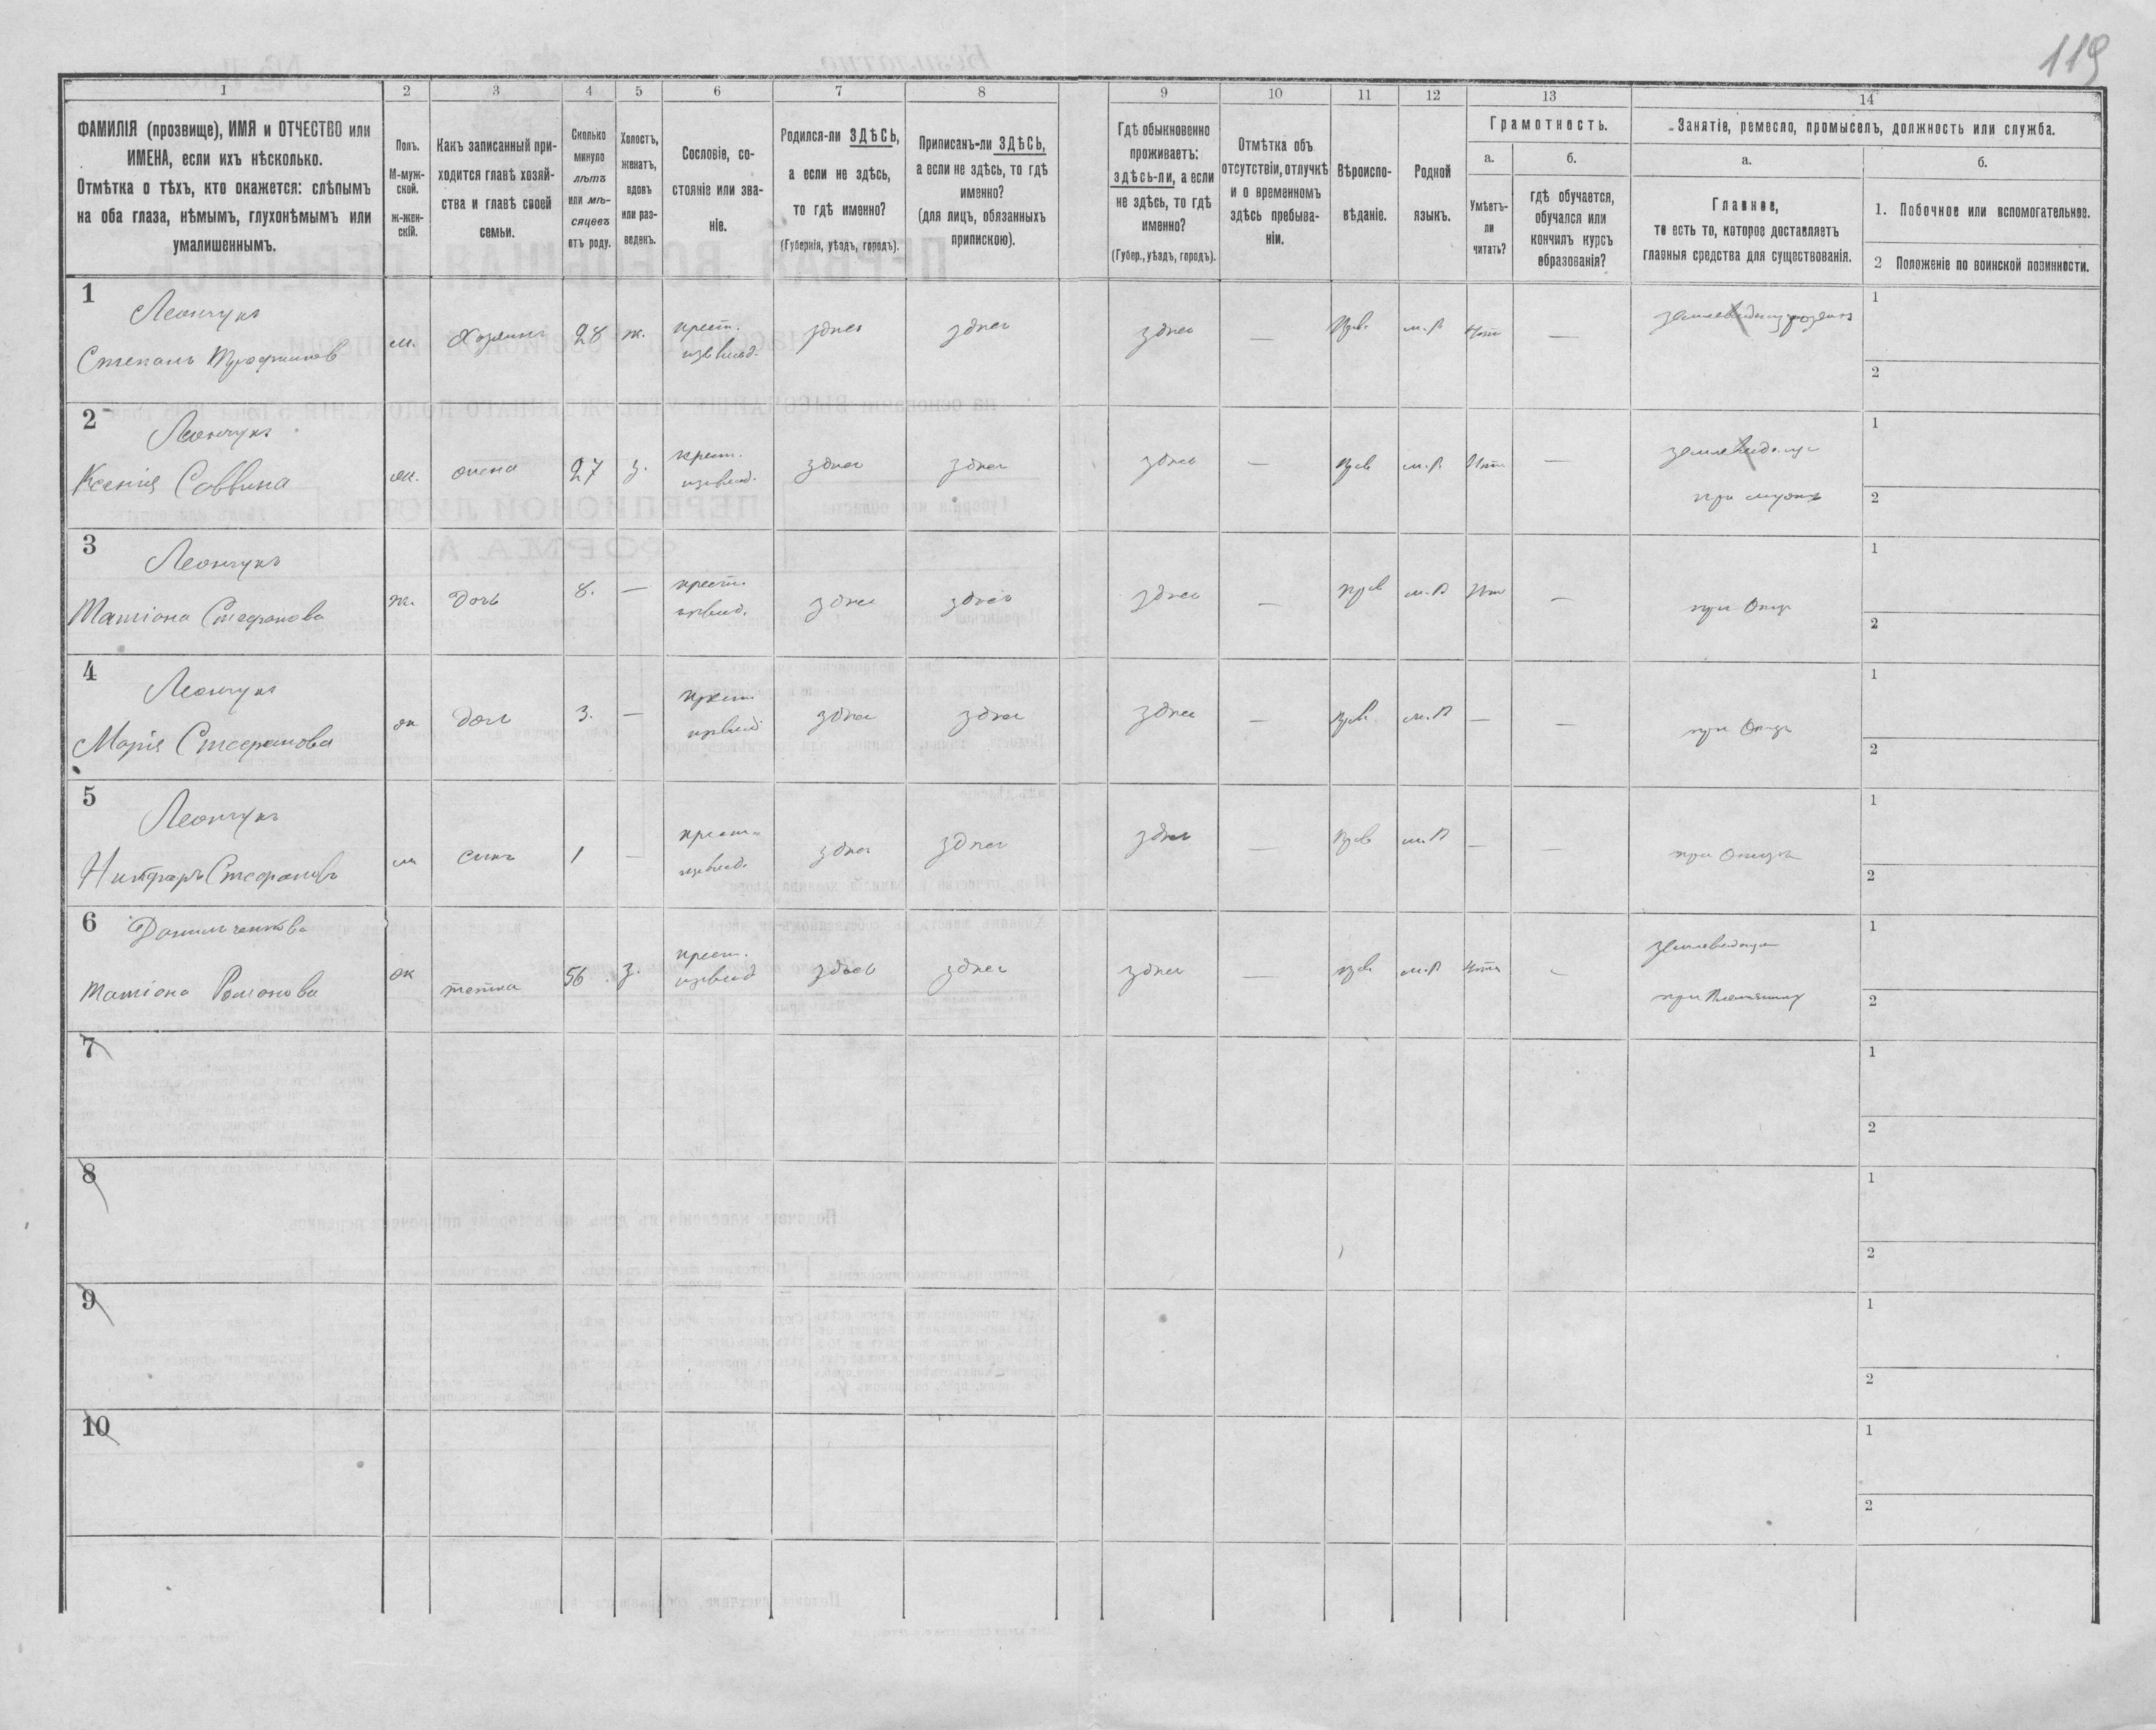 119
1 2 3 4 5 6 7 8 9 10 11 12 13 14
ФАМИЛІЯ (прозвище), ИМЯ и ОТЧЕСТВО или
ИМЕНА, если ихъ нѣсколько.
Отмѣтка о тѣхъ, кто окажется: слѣпымъ
на оба глаза, нѣмымъ, глухонѣмымъ или
умалишеннымъ.
Полъ.
М-муж-
ской.
ж-жен-
скій.
Какъ записанный при-
ходится главѣ хозяй-
ства и главѣ своей
семьи.
Сколько
минуло
лѣтъ
или мѣ-
сяцевъ
отъ роду.
Холостъ,
женатъ,
вдовъ
или раз-
веденъ.
Сословіе, со-
стояніе или зва-
ніе.
Родился-ли ЗДѢСЬ,
а если не здѣсь,
то гдѣ именно?
(Губернія, уѣздъ, городъ).
Приписанъ-ли ЗДѢСЬ,
а если не здѣсь, то гдѣ
именно?
(для лицъ, обязанныхъ
припискою).
Гдѣ обыкновенно
проживаетъ:
здѣсь-ли, а если
не здѣсь, то гдѣ
именно?
(Губер., уѣздъ, городъ).
Отмѣтка объ
отсутствіи, отлучкѣ
и о временномъ
здѣсь пребыва-
ніи.
Вѣроиспо-
вѣданіе.
Родной
языкъ.
Грамотность.
а.
Умѣетъ-
ли
читать?
б.
гдѣ обучается,
обучался или
кончилъ курсъ
образованія?
Занятіе, ремесло, промыселъ, должность или служба.
а.
Главное,
то есть то, которое доставляетъ
главныя средства для существованія.
б.
1. Побочное или вспомогательное.
2 Положеніе по воинской повинности.
1
Леончукъ
Степанъ Трофимовъ
м. Хозяинъ 28 ж. крест. здѣсь здѣсь здѣсь — Прав. м.р. Нѣт —
1
2
2
Леончукъ
Ксенія Саввина
ж. жена 27 з. крест. здѣсь здѣсь здѣсь — Прав м.р. Нѣт —
при мужѣ
1
2
3
Леончукъ
Татіана Стефанова
ж. дочь 8. — крест. здѣсь здѣсь здѣсь — Прав м.р. Нѣт —
при Отцѣ
1
2
4
Леончукъ
Марія Стефанова
ж дочь 3. — крест. здѣсь здѣсь здѣсь — Прав. м.р. — —
при Отцѣ
1
2
5
Леончукъ
Стефановъ
м сынъ 1 — крест. здѣсь здѣсь здѣсь — Прав м.р. — —
при Отцѣ
1
2
6
Татіана Романова
ж тетка 56 з. крест. здѣсь здѣсь здѣсь — прав. м.р. Нѣт —
при Племяннику
1
2
7
1
2
8
1
2
9
1
2
10
1
2